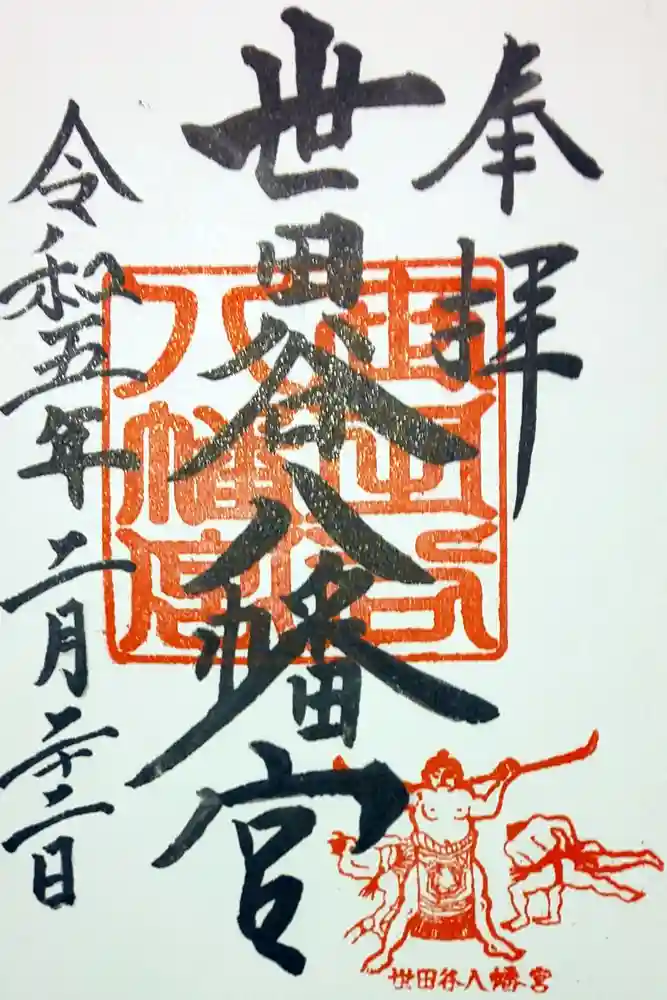 奉拝
世田谷八幡宮
令和五年二月二十二日
世田谷
八幡宮
世田谷八幡宮